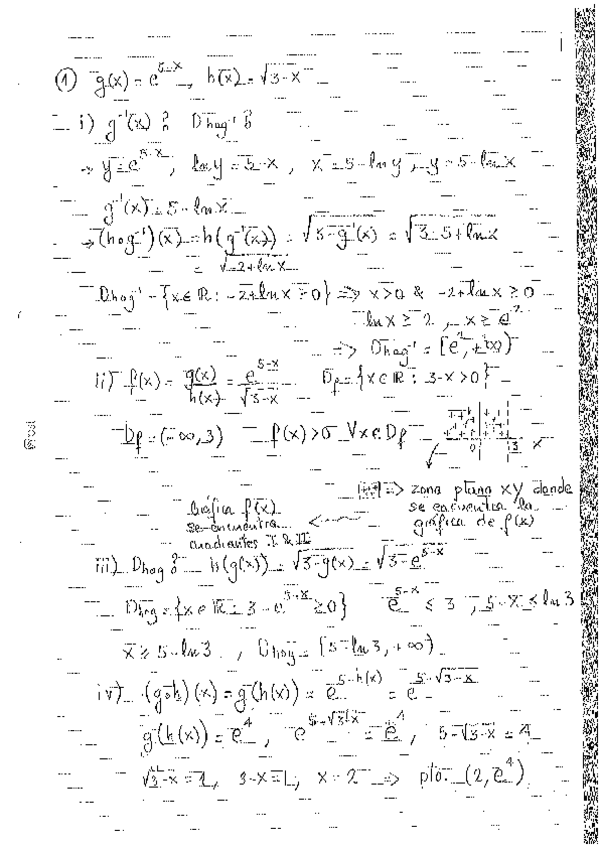 ① g(x) = e^{5-x}, h(x) = √(3-x)
i) g⁻¹(x) ? D_{hog⁻¹} ?
→ y = e^{5-x}, ln y = 5-x, x = 5 - ln y, y = 5 - ln x
g⁻¹(x) = 5 - ln x
→ (hog⁻¹)(x) = h(g⁻¹(x)) = √(3-g⁻¹(x)) = √(3-5+ln x)
= √(-2+ln x)
D_{hog⁻¹} = {x ∈ ℝ : -2+ln x ≥ 0} => x>0 & -2+ln x ≥ 0
ln x ≥ 2, x ≥ e²
=> D_{hog⁻¹} = [e², +∞)
ii) f(x) = g(x)/h(x) = e^{5-x}/√(3-x) D_f = {x ∈ ℝ : 3-x>0}
D_f = (-∞, 3) f(x)>0 ∀x∈D_f
0 3 x
=> zona plano xy donde
se encuentra la
gráfica de f(x)
Gráfica f(x)
se encuentra
cuadrantes I & II
iii) D_{hog} ? h(g(x)) = √(3-g(x)) = √(3-e^{5-x})
D_{hog} = {x ∈ ℝ : 3 - e^{5-x} ≥ 0} e^{5-x} ≤ 3, 5-x ≤ ln 3
x ≥ 5 - ln 3, D_{hog} = [5-ln 3, +∞)
iv) (goh)(x) = g(h(x)) = e^{5-h(x)} = e^{5-√(3-x)}
g(h(x)) = e⁴, e^{5-√(3-x)} = e⁴, 5-√(3-x) = 4
√(3-x) = 1, 3-x = 1, x = 2 => pto. (2, e⁴)